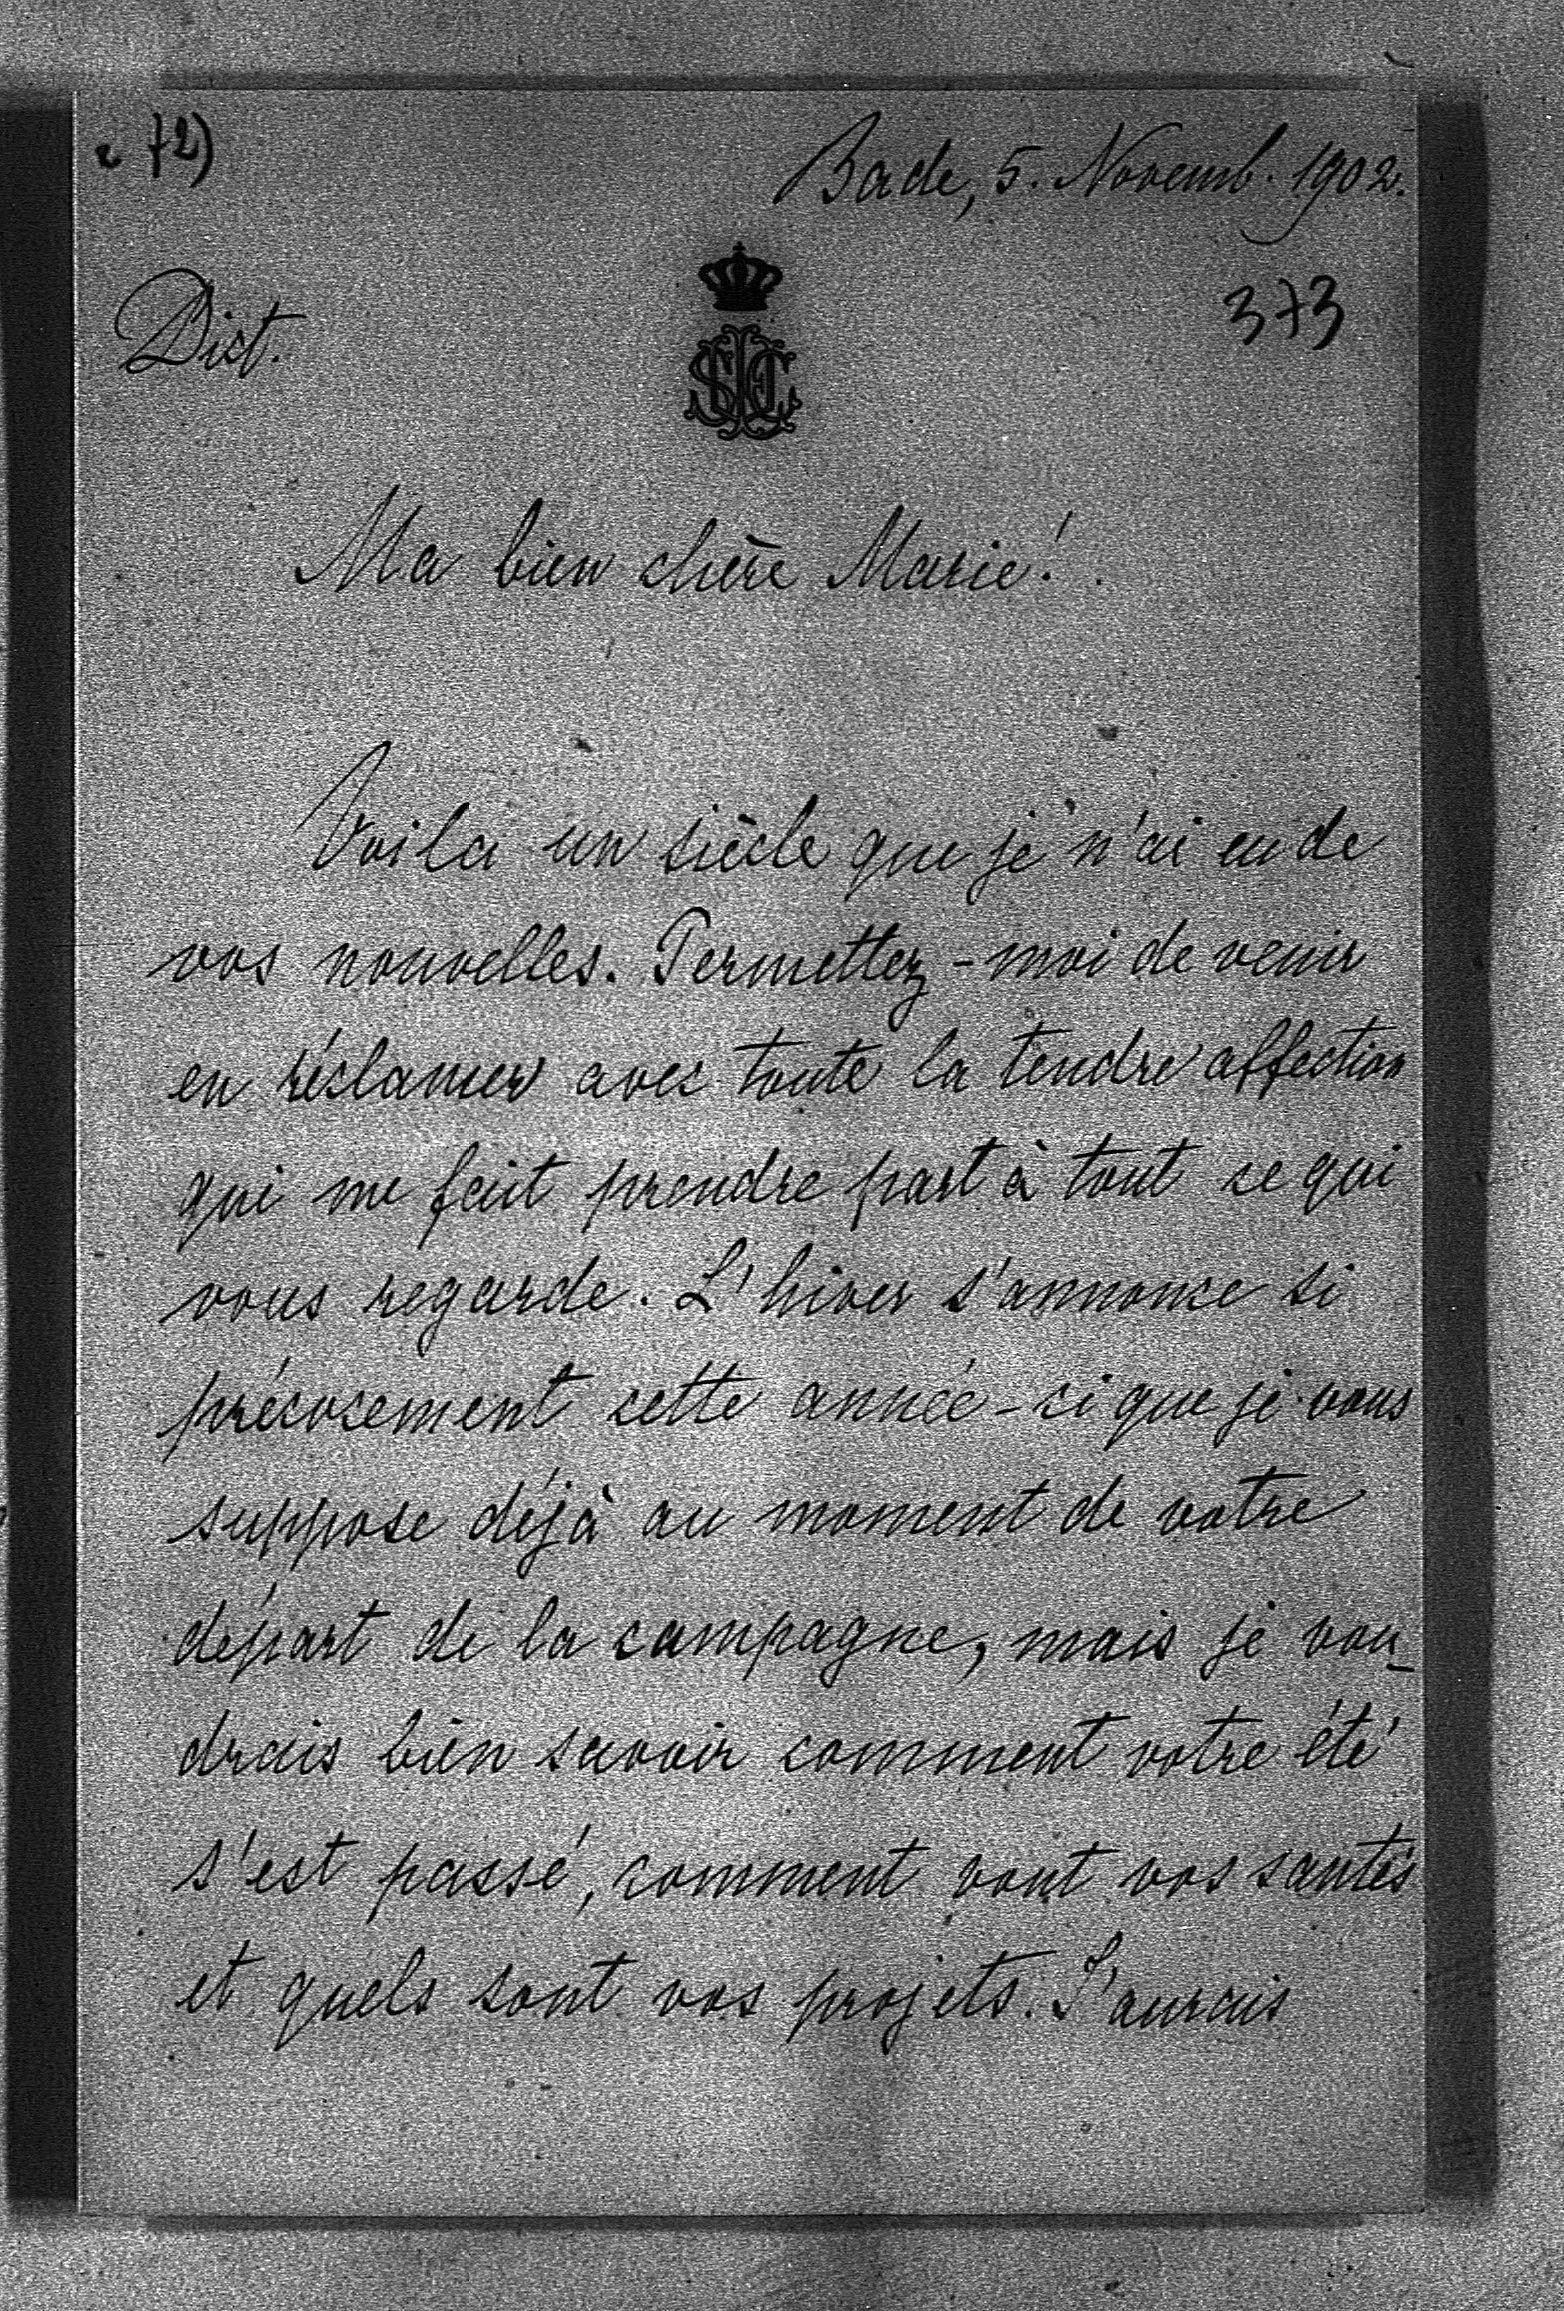 72)
Bade, 5. Novemb. 1902.
Dict.
373
Ma bien chère Marie!
Voila un siècle que je n'ai eu de
vos nouvelles. Permettez-moi de venir
en réclamer avec toute la tendre affection
qui me fait prendre part à tout ce qui
vous regarde. L'hiver s'annonce si
précocement cette année-ci que je vous
suppose déjà au moment de votre
départ de la campagne, mais je vou-
drais bien savoir comment votre été
s'est passé, comment vont vos santés
et quels sont vos projets. J'aurais